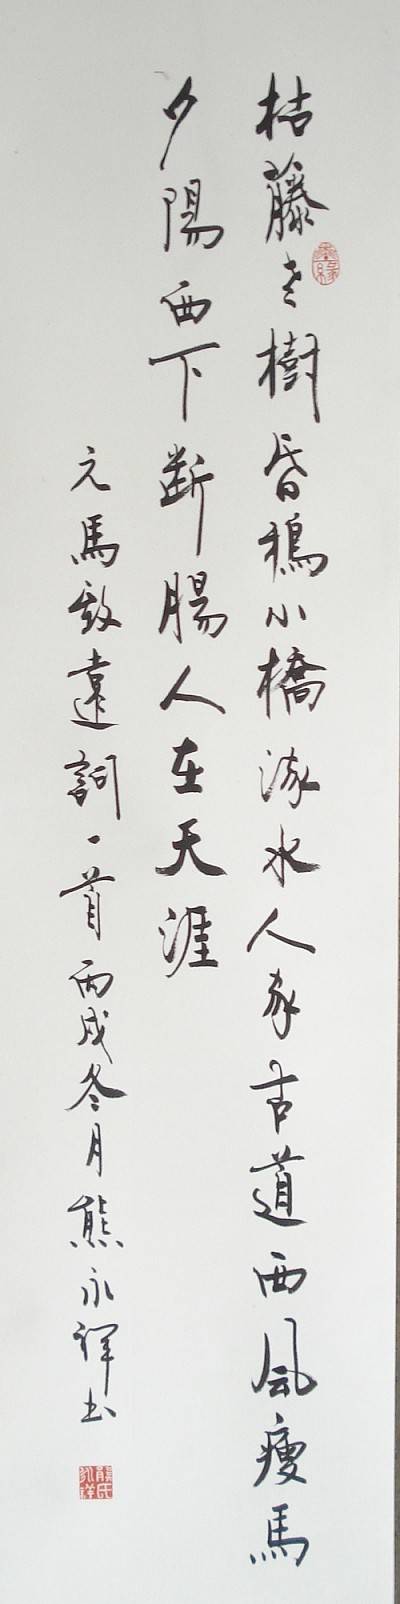 枯藤老樹昏鴉小橋流水人家古道西風瘦馬
夕陽西下断腸人在天涯
元馬致遠詞一首丙戌冬月熊永祥书